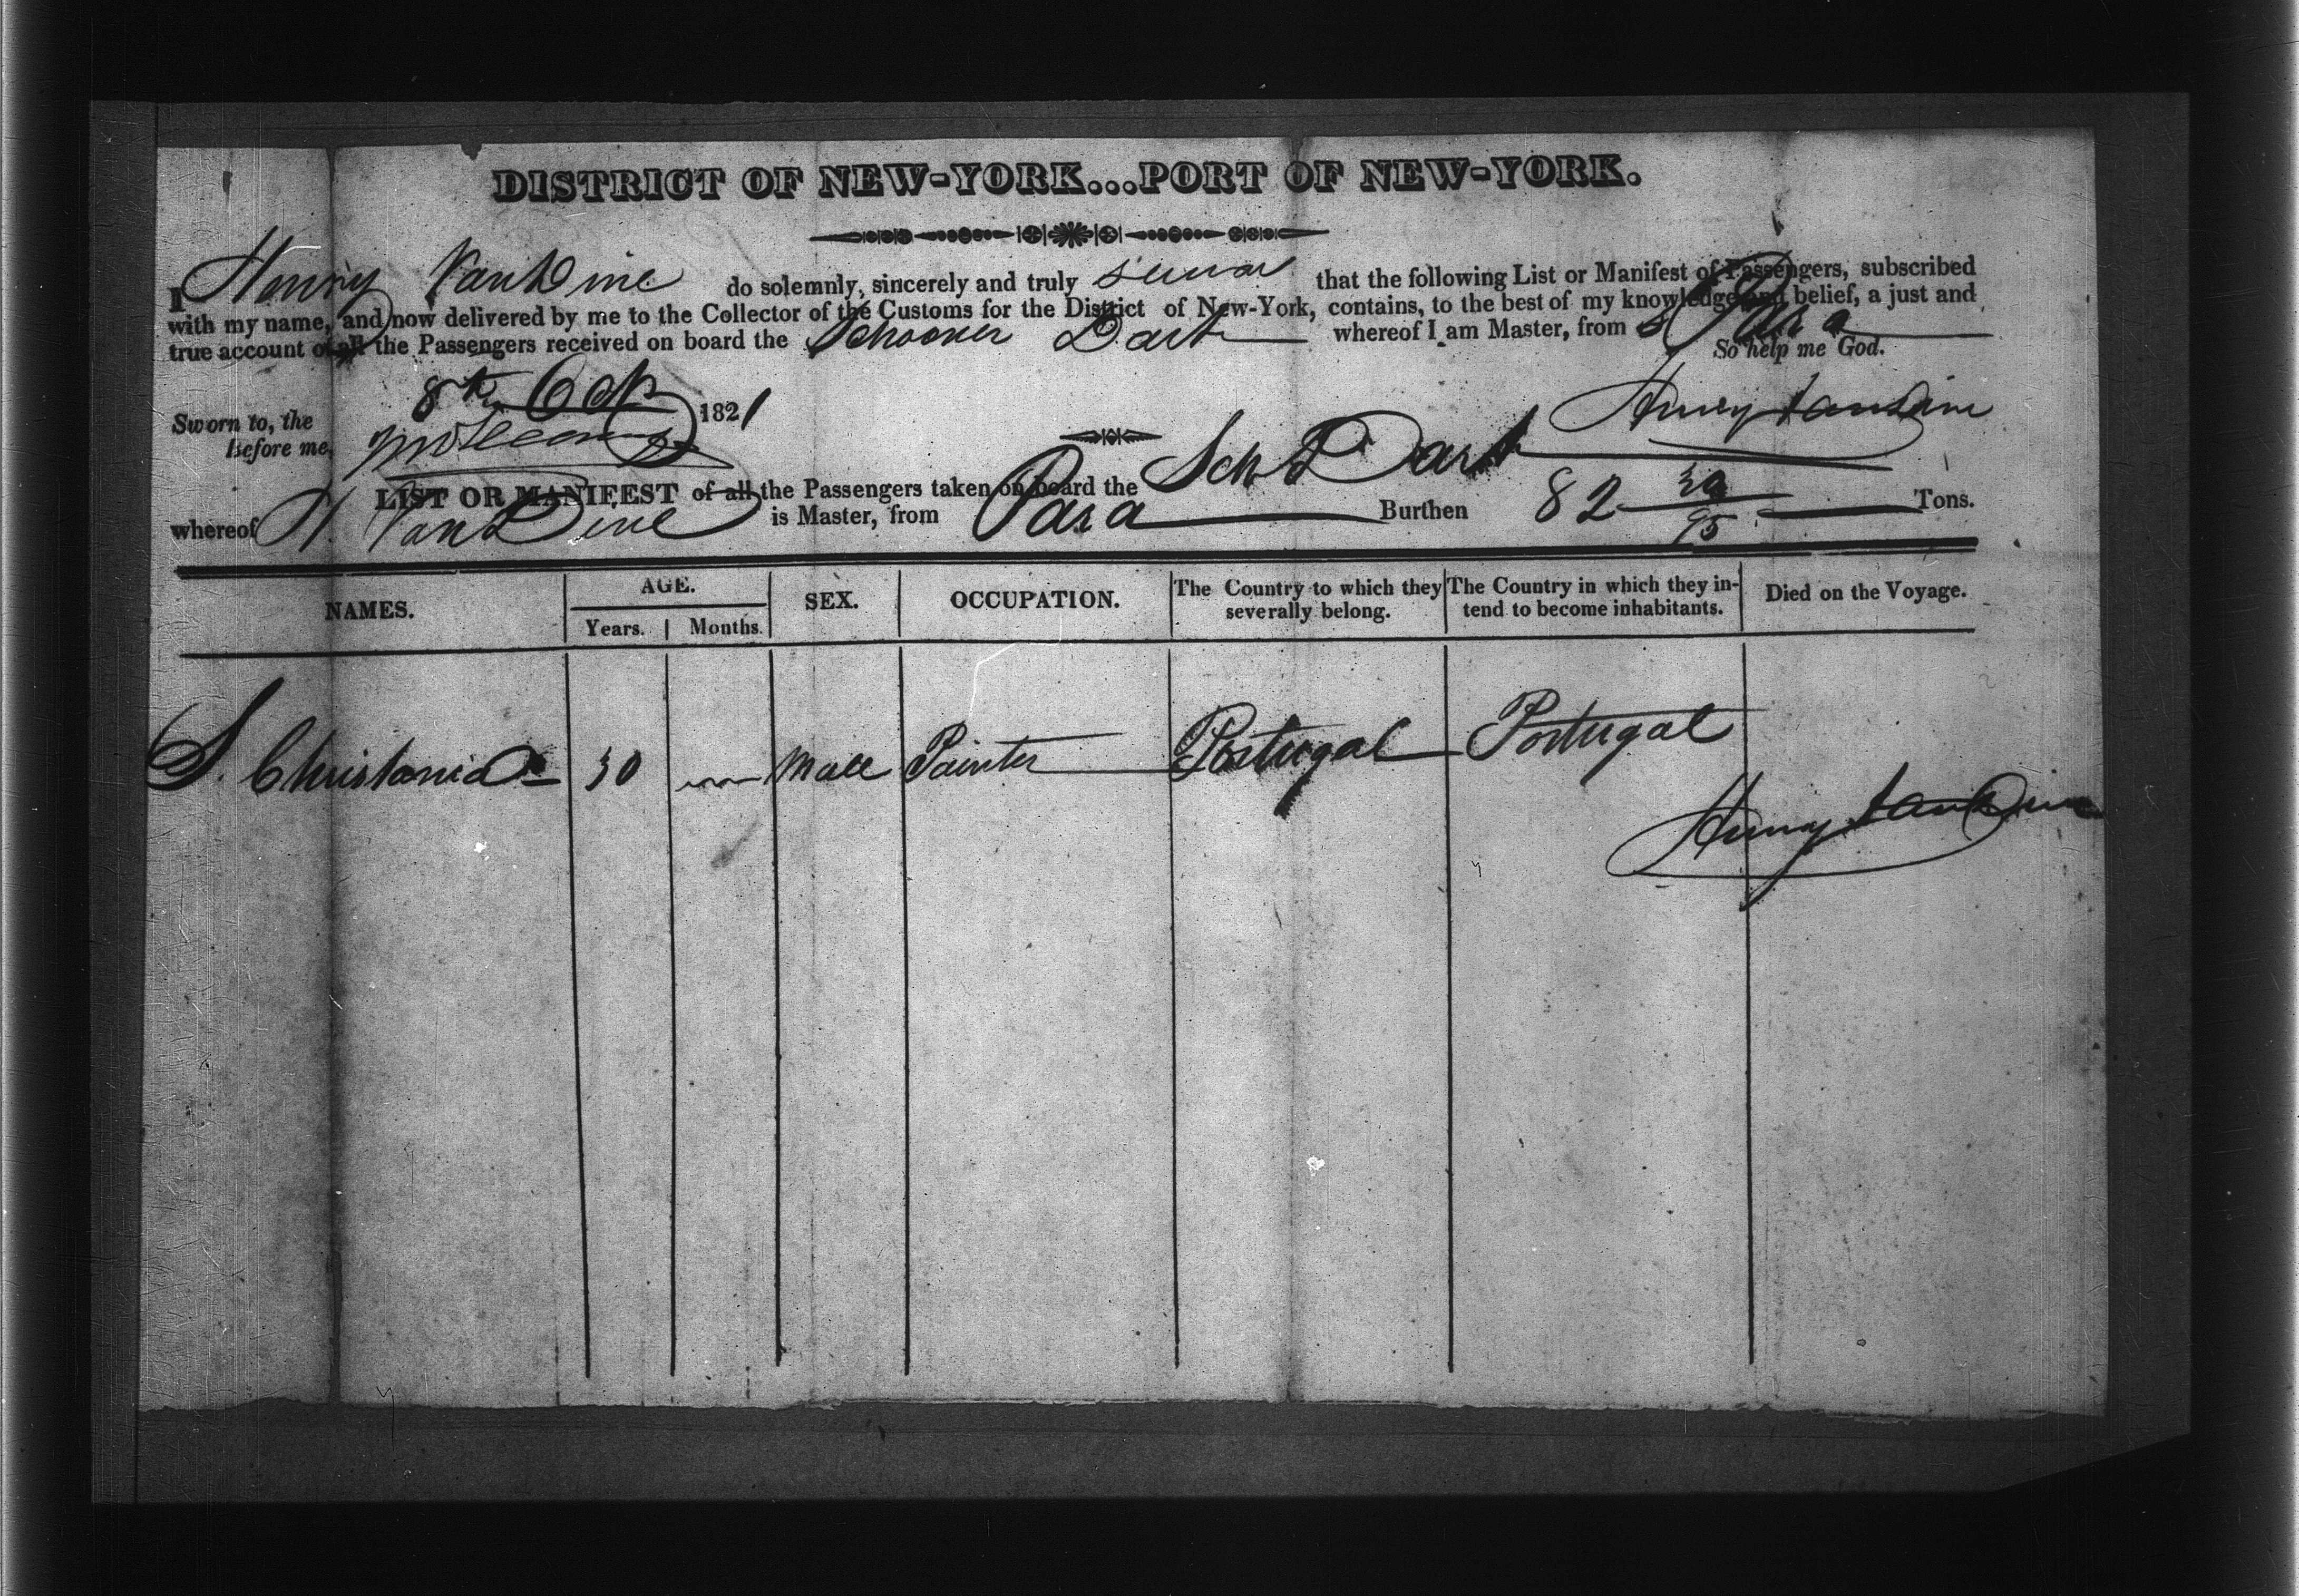 DISTRICT OF NEW-YORK...PORT OF NEW-YORK.
I Henry VanDine do solemnly, sincerely and truly swear that the following List or Manifest of Passengers, subscribed
with my name, and now delivered by me to the Collector of the Customs for the District of New-York, contains, to the best of my knowledge and belief, a just and
true account of all the Passengers received on board the Schooner Dart whereof I am Master, from Para
So help me God.
Sworn to, the 8th Oct 1821
Henry VanDine
Before me,
LIST OR MANIFEST of all the Passengers taken on board the Schr Dart
whereof H. VanDine is Master, from Para Burthen 82 30/95 Tons.
NAMES. AGE. SEX. OCCUPATION. The Country to which they severally belong. The Country in which they intend to become inhabitants. Died on the Voyage.
Years. Months.
S. Christania 30 Male Painter Portugal Portugal
Henry VanDine